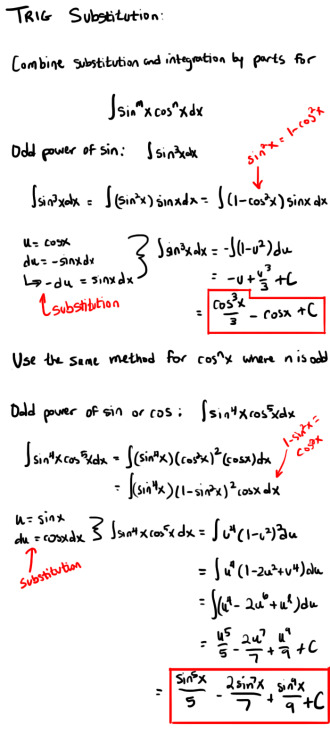 TRIG SUBSTITUTION:
Combine substitution and integration by parts for
∫sin^m x cos^n x dx
sin²x = 1-cos²x
Odd power of sin: ∫sin³xdx
∫sin³xdx = ∫(sin²x) sinxdx = ∫(1-cos²x) sinxdx
u = cosx
du = -sinxdx
↳ -du = sinxdx
substitution
∫sin³xdx = -∫(1-u²)du
= -u + u³/3 + C
= cos³x/3 - cosx + C
Use the same method for cosⁿx where n is odd
Odd power of sin or cos: ∫sin⁴xcos⁵xdx
1-sin²x = cos²x
∫sin⁴xcos⁵xdx = ∫(sin⁴x)(cos²x)²(cosx)dx
= ∫(sin⁴x)(1-sin²x)² cosxdx
u = sinx
du = cosxdx
substitution
∫sin⁴xcos⁵xdx = ∫u⁴(1-u²)²du
= ∫u⁴(1-2u²+u⁴)du
= ∫(u⁴-2u⁶+u⁸)du
= u⁵/5 - 2u⁷/7 + u⁹/9 + C
= sin⁵x/5 - 2sin⁷x/7 + sin⁹x/9 + C